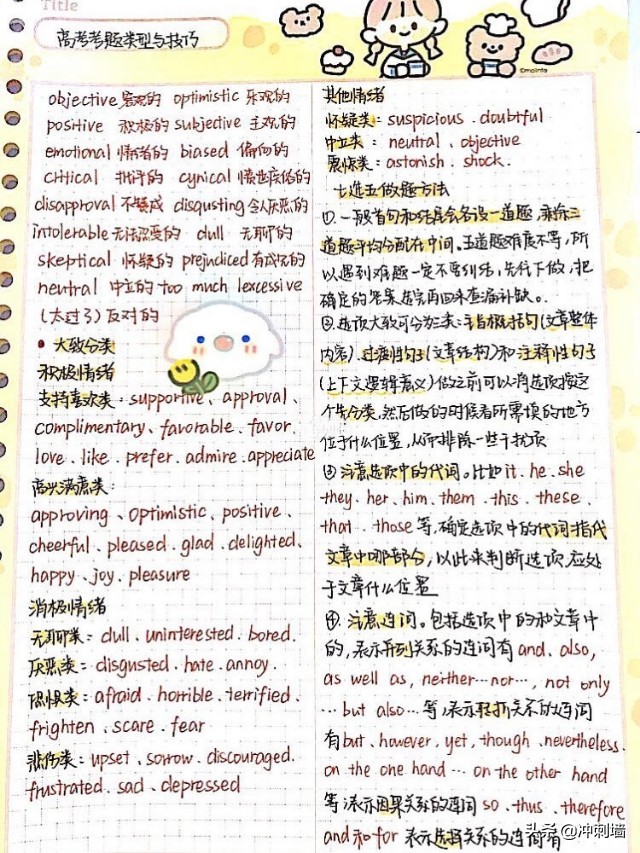 Title
高考考题类型与技巧
objective 客观的 optimistic 乐观的
positive 积极的 subjective 主观的
emotional 情绪的 biased 偏向的
critical 批评的 cynical 愤世疾俗的
disapproval 不赞成 disgusting 令人厌恶的
intolerable 无法忍受的 dull 无聊的
skeptical 怀疑的 prejudiced 有成见的
neutral 中立的 too much lexcessive
(太过了) 反对的
• 大致分类
积极情绪
支持喜欢类: supportive、approval、
complimentary、favorable、favor、
love、like、prefer、admire、appreciate
高兴满意类:
approving、optimistic、positive、
cheerful、pleased、glad、delighted、
happy、joy、pleasure
消极情绪
无聊类: dull、uninterested、bored、
厌恶类: disgusted、hate、annoy、
恐惧类: afraid、horrible、terrified、
frighten、scare、fear
悲伤类: upset、sorrow、discouraged、
frustrated、sad、depressed
其他情绪
怀疑类: suspicious、doubtful
中立类: neutral、objective
震惊类: astonish、shock、
七选五做题方法
①、一般首句和结尾会各设一道题,剩余三
道题平均分配在中间。五道题难度不等,所
以遇到难题一定不要纠结,先往下做,把
确定的答案选完再回来查漏补缺。
②选项大致可分为三类:主旨概括句(文章整体
内容)、过渡性句子(文章结构)和注释性句子
(上下文逻辑意义)做之前可以将选项按这
个先分类,然后做的时候看所需填的地方
位于什么位置,从而排除一些干扰项
③注意选项中的代词。比如it、he、she
they、her、him、them、this、these、
that、those等,确定选项中的代词指代
文章中哪部分,以此来判断选项应处
于文章什么位置
④、注意连词。包括选项中的和文章中
的,表示并列关系的连词有and、also,
as well as, neither…nor…, not only
…but also…等;表示转折关系的连词
有but、however、yet、though、nevertheless、
on the one hand…on the other hand
等;表示因果关系的连词so、thus、therefore
and和for 表示选择关系的连词有
©mointo
头条@冲刺墙